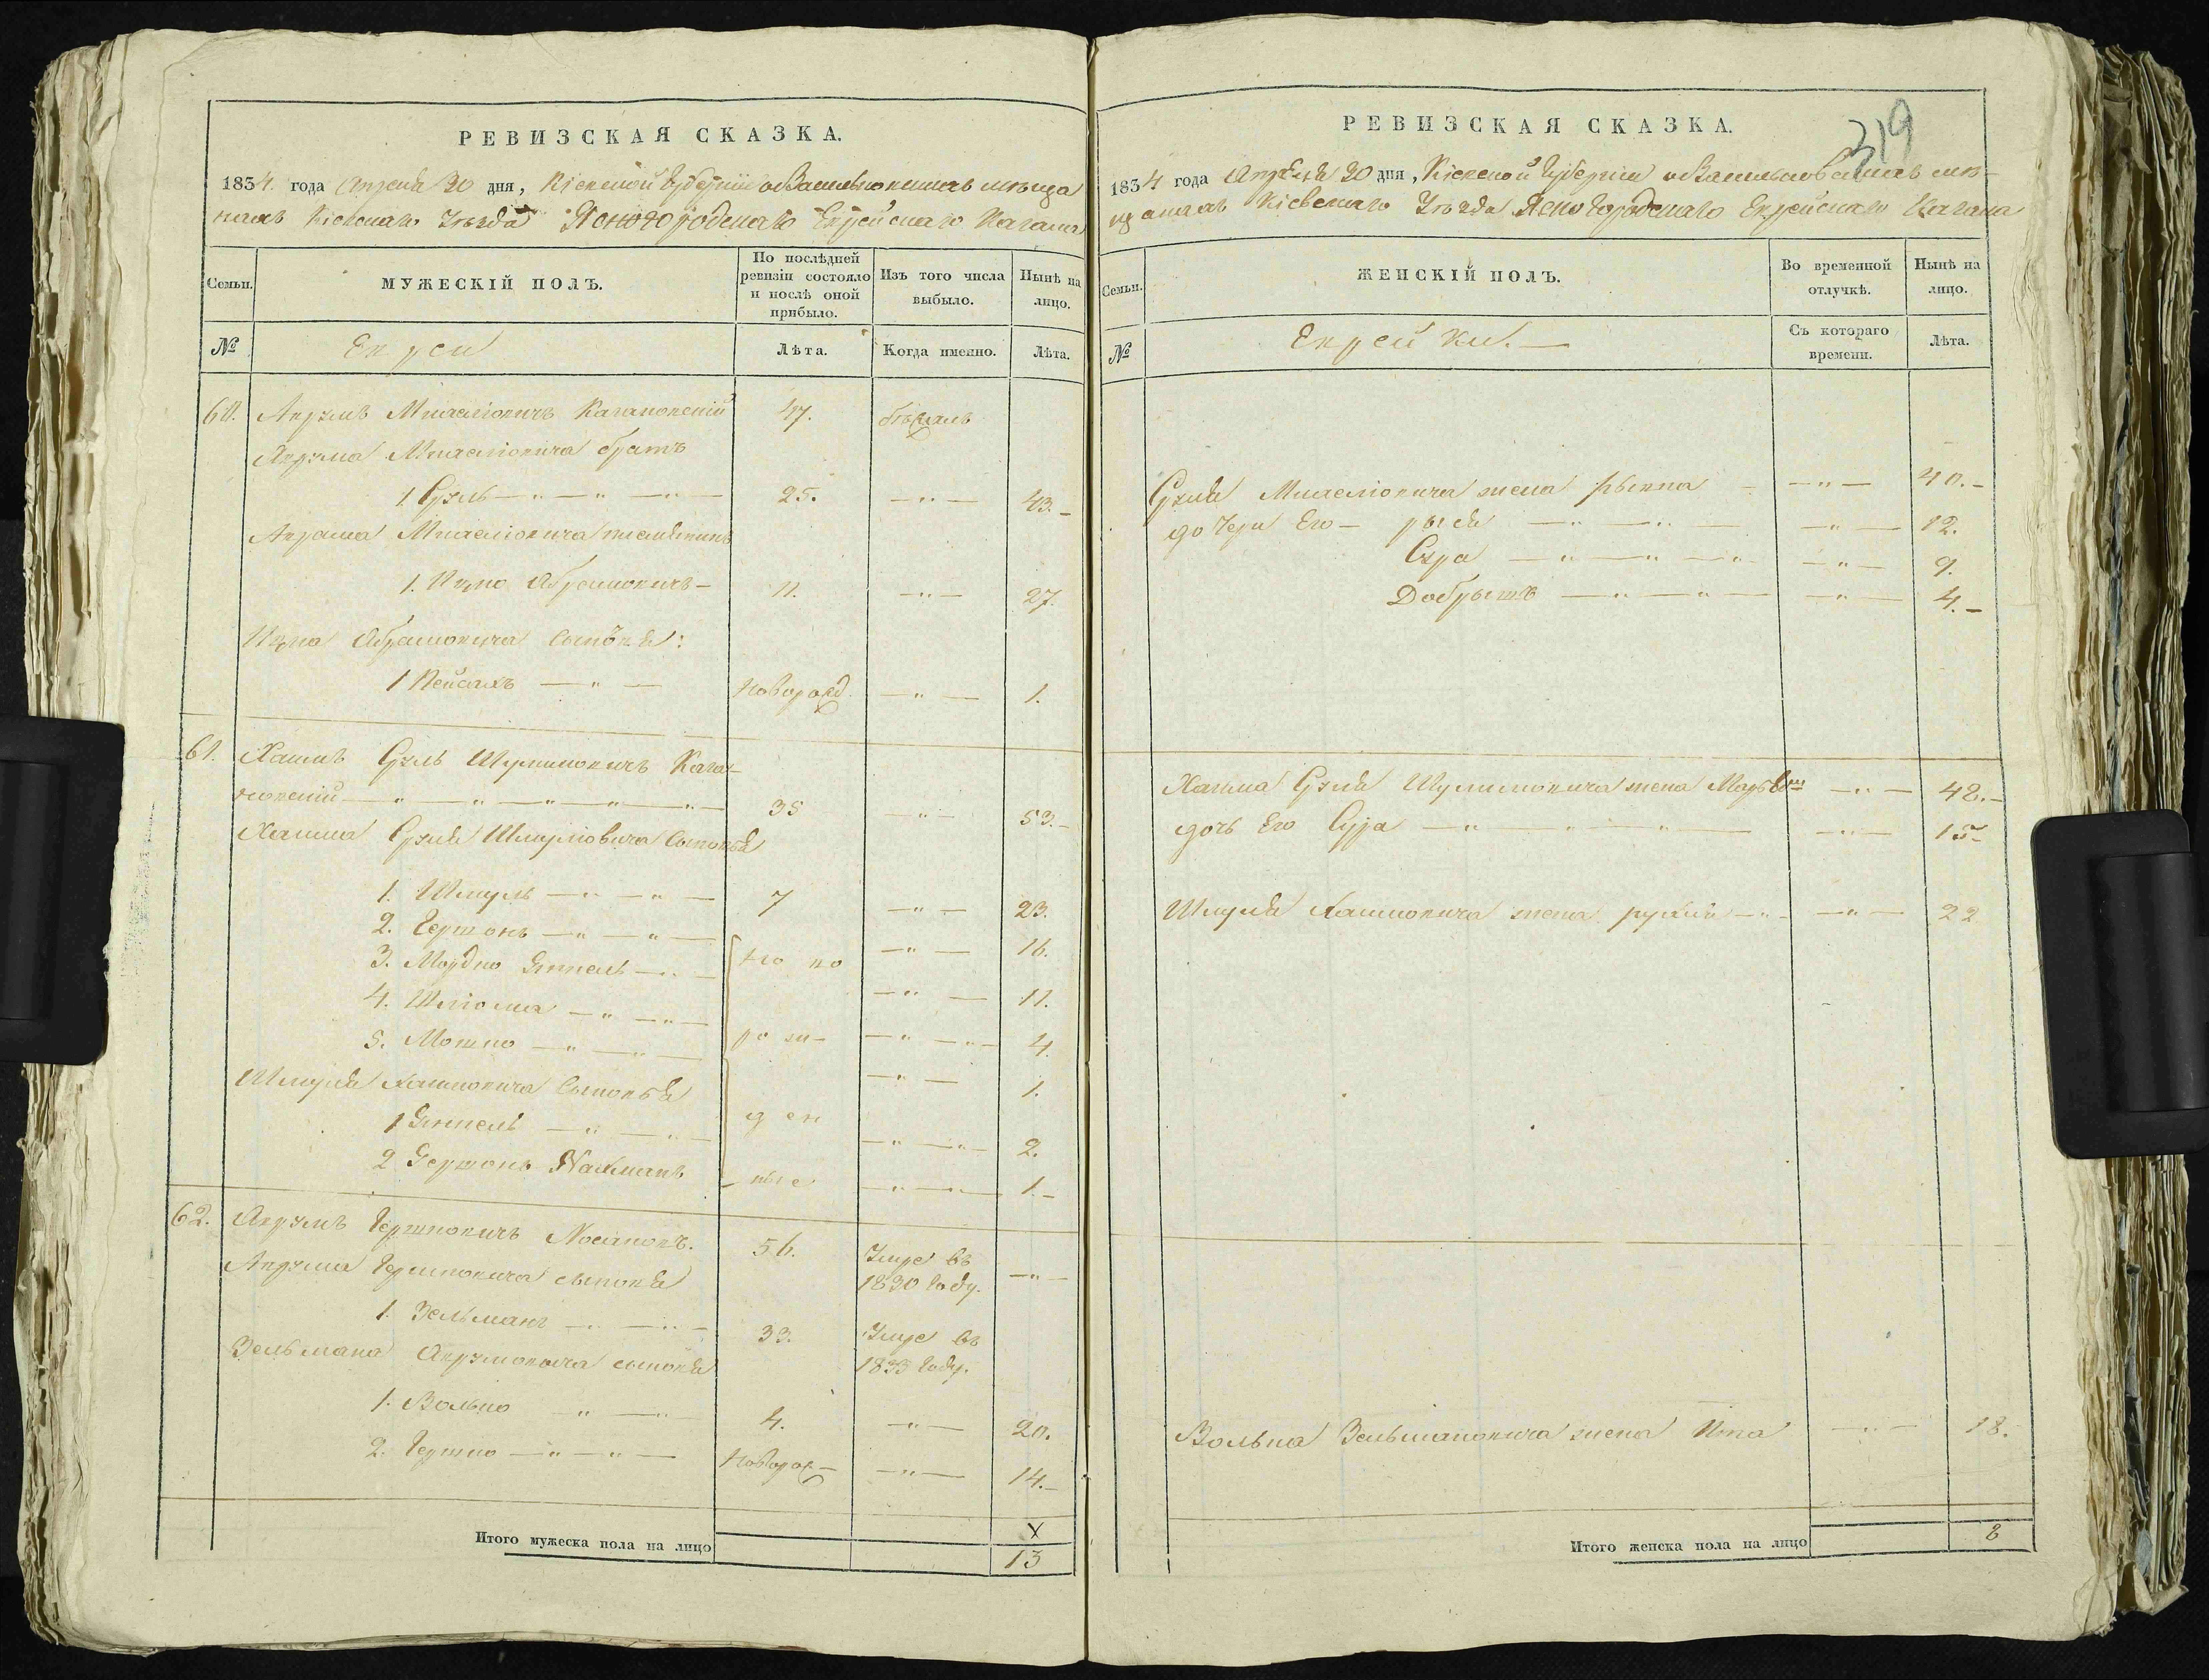 РЕВИЗСКАЯ СКАЗКА.
1834. года Апреля 30 дня, Кіевской Губерніи о Васильковскихъ мѣща
нахъ Кіевскаго Уѣзда Ясногородскаго Еврейскаго Кагала
Семьи.
МУЖЕСКІЙ ПОЛЪ.
По послѣдней ревизіи состояло и послѣ оной прибыло.
Изъ того числа выбыло.
Нынѣ на лицо.
№
Евреи
Лѣта.
Когда именно.
Лѣта.
60. Аврумъ Кагановскій 47. бѣжалъ
Аврума брат
1 Срэль 25. — „ — 43.
Аврама племянникъ
1. Ицко Абрамовичъ — 11. — „ — 27.
Ицка Абрамовича сыновья:
1 Пейсахъ — „ — Новорожд. — „ — 1.
61. Хаимъ Срэль Шмулиовичъ Кага-
новскій 35 — „ — 53.
Хаима Сруля Шмулiовича сыновья
1. Шмуль — „ — „ — 7 — „ — 23.
2. Гершонъ — „ — „ — — „ — 16.
3. Мордко Янкель — „ — но во — „ — 11.
4. Шліома — „ — „ — — „ — 4.
5. Мошко — „ — „ — ро ж- — „ — 1.
Шмуля Хаимовича сыновья
1 Янкель — „ — „ — д ен — „ — 2.
2 Гершонъ Нахманъ ные — „ — 1.
62. Аврумъ Гершковичъ Носановъ. 56. Умре въ 1830 Году. — „ —
Аврума Гершковича сыновья
1. Зельманъ — „ — „ — 33. Умре въ 1833 Году.
Зельмана Аврумовича сыновья
1. Волько — „ — „ — 4. — „ — 20.
2. Гершко — „ — „ — Новорож- — „ — 14.
x
Итого мужеска пола на лицо 13
319
РЕВИЗСКАЯ СКАЗКА.
1834 года Апрѣля 30 дня, Кіевской Губерніи о Васильковскихъ мѣ-
щанахъ Кіевскаго Уѣзда Ясногородскаго Еврейскаго Кагала
Семьи.
ЖЕНСКІЙ ПОЛЪ.
Во временной отлучкѣ.
Нынѣ на лицо.
№
Еврейки. —
Съ котораго времени.
Лѣта.
Сруля жена Рывка — — „ — 40.
дочери Его — Рыся — „ — „ — — „ — 12.
Сура — „ — „ — „ — — „ — 9.
Добрышъ — „ — „ — — „ — 4.
Хаима Сруля Шмулиовича жена — „ — 48.
дочь Его Сура — „ — „ — „ — — „ — 15
Шмуля Хаимовича жена — „ — 22
Волька Зельмановича жена Ита — „ — 18.
Итого женска пола на лицо 8